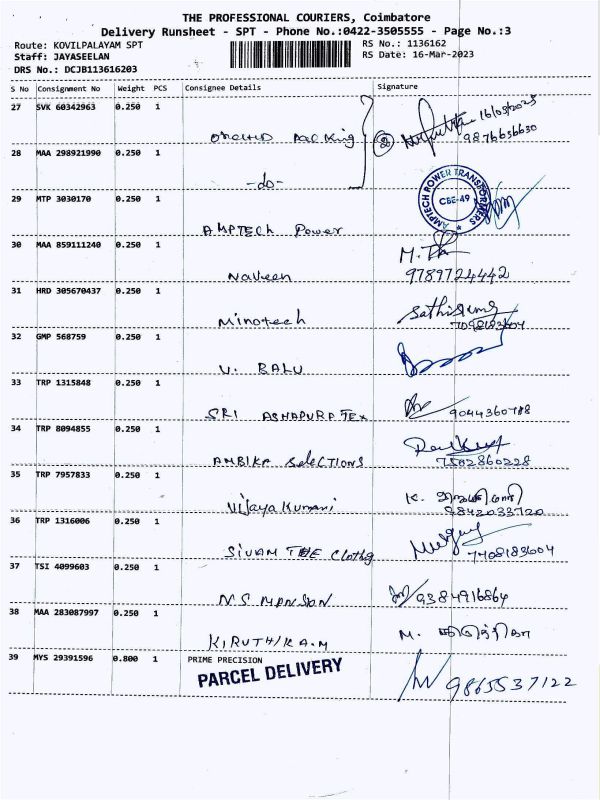 THE PROFESSIONAL COURIERS, Coimbatore
Delivery Runsheet - SPT - Phone No.:0422-3505555 - Page No.:3
Route: KOVILPALAYAM SPT
Staff: JAYASEELAN
DRS No.: DCJB113616203
RS No.: 1136162
RS Date: 16-Mar-2023
S No Consignment No Weight PCS Consignee Details Signature
27 SVK 60342963 0.250 1
Orchid Packing 16/03/2023
9876656630
28 MAA 298921990 0.250 1
-do-
29 MTP 3030170 0.250 1
AMPTECH Power
AMPTECH POWER TRANSFORMERS
CBE-49
30 MAA 859111240 0.250 1
Naveen 9789724442
31 HRD 305670437 0.250 1
Minotech
7098183604
32 GMP 568759 0.250 1
V. BALU
33 TRP 1315848 0.250 1
SRI ASHAPURA TEX 9044360788
34 TRP 8094855 0.250 1
AMBIKA SELECTIONS 7502860228
35 TRP 7957833 0.250 1
Vijaya Kumari 9842033720
36 TRP 1316006 0.250 1
SIVAM THE Clothg 7708183604
37 TSI 4099603 0.250 1
N.S MANSON 9384916864
38 MAA 283087997 0.250 1
KIRUTHIKA.M M. கிருத்திகா
39 MYS 29391596 0.800 1 PRIME PRECISION
PARCEL DELIVERY
9865537122